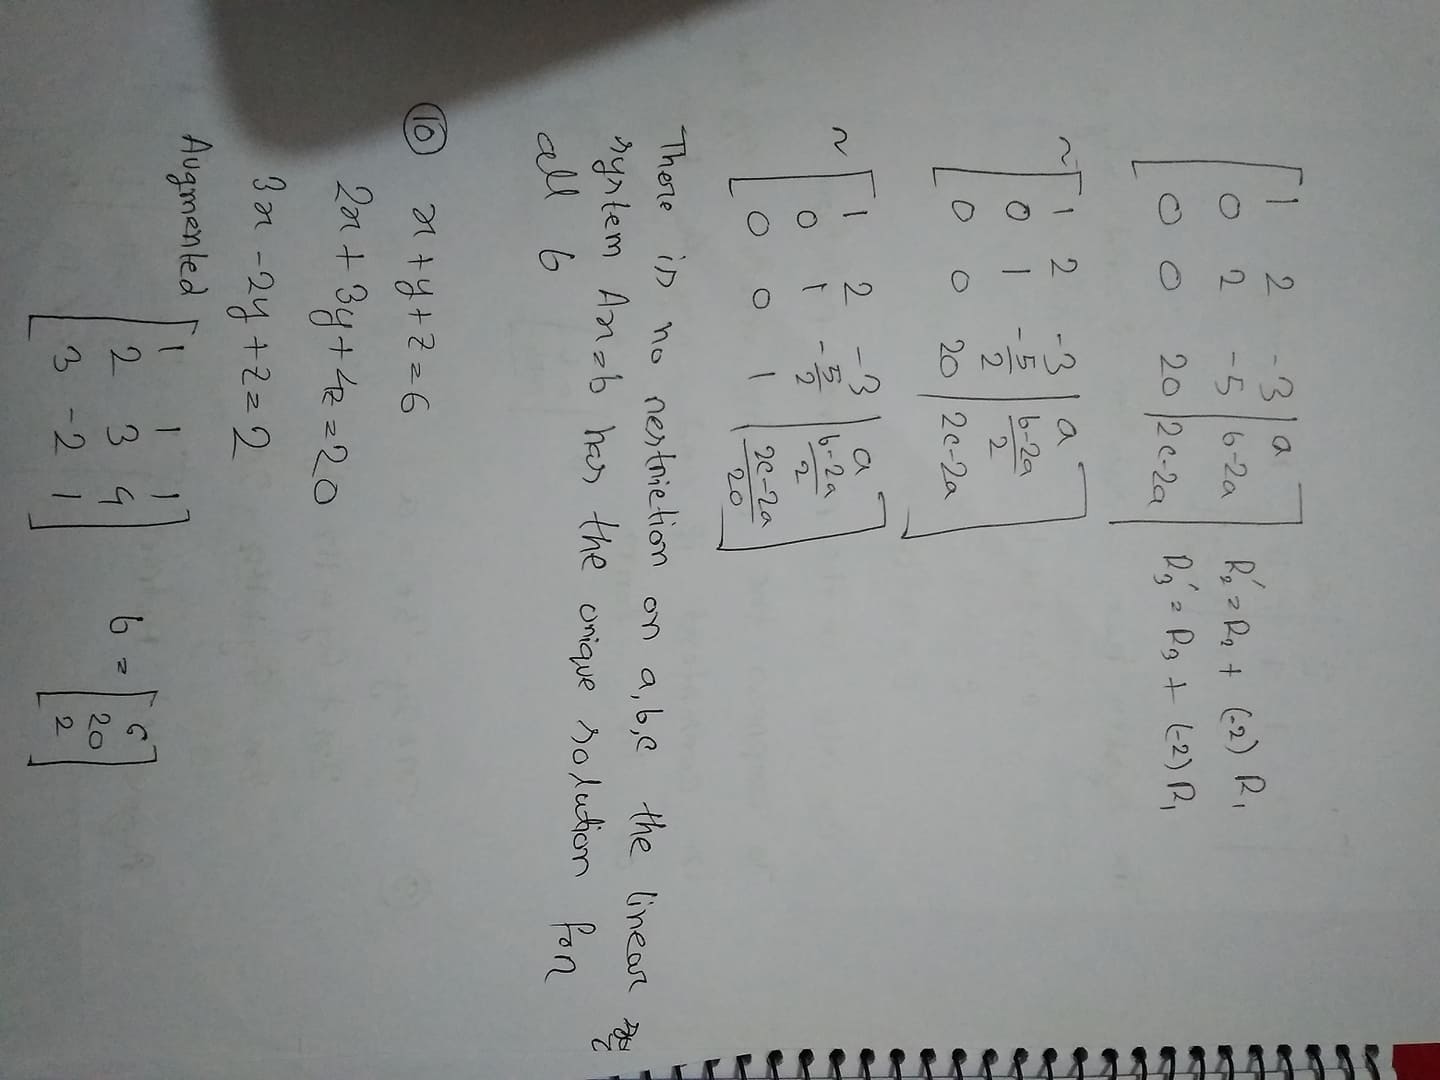 1 2 -3 | a
0 2 -5 | b-2a R₂' = R₂ + (-2) R₁
0 0 20 | 2c-2a R₃' = R₃ + (-2) R₁
~ 1 2 -3 | a
0 1 -5/2 | b-2a/2
0 0 20 | 2c-2a
~ 1 2 -3 | a
0 1 -5/2 | b-2a/2
0 0 1 | 2c-2a/20
There is no restriction on a, b, c the linear
system Ax=b has the unique solution for
all b
10 x + y + z = 6
2x + 3y + 4z = 20
3x - 2y + z = 2
Augmented
1 1 1
2 3 4
3 -2 1
b =
6
20
2